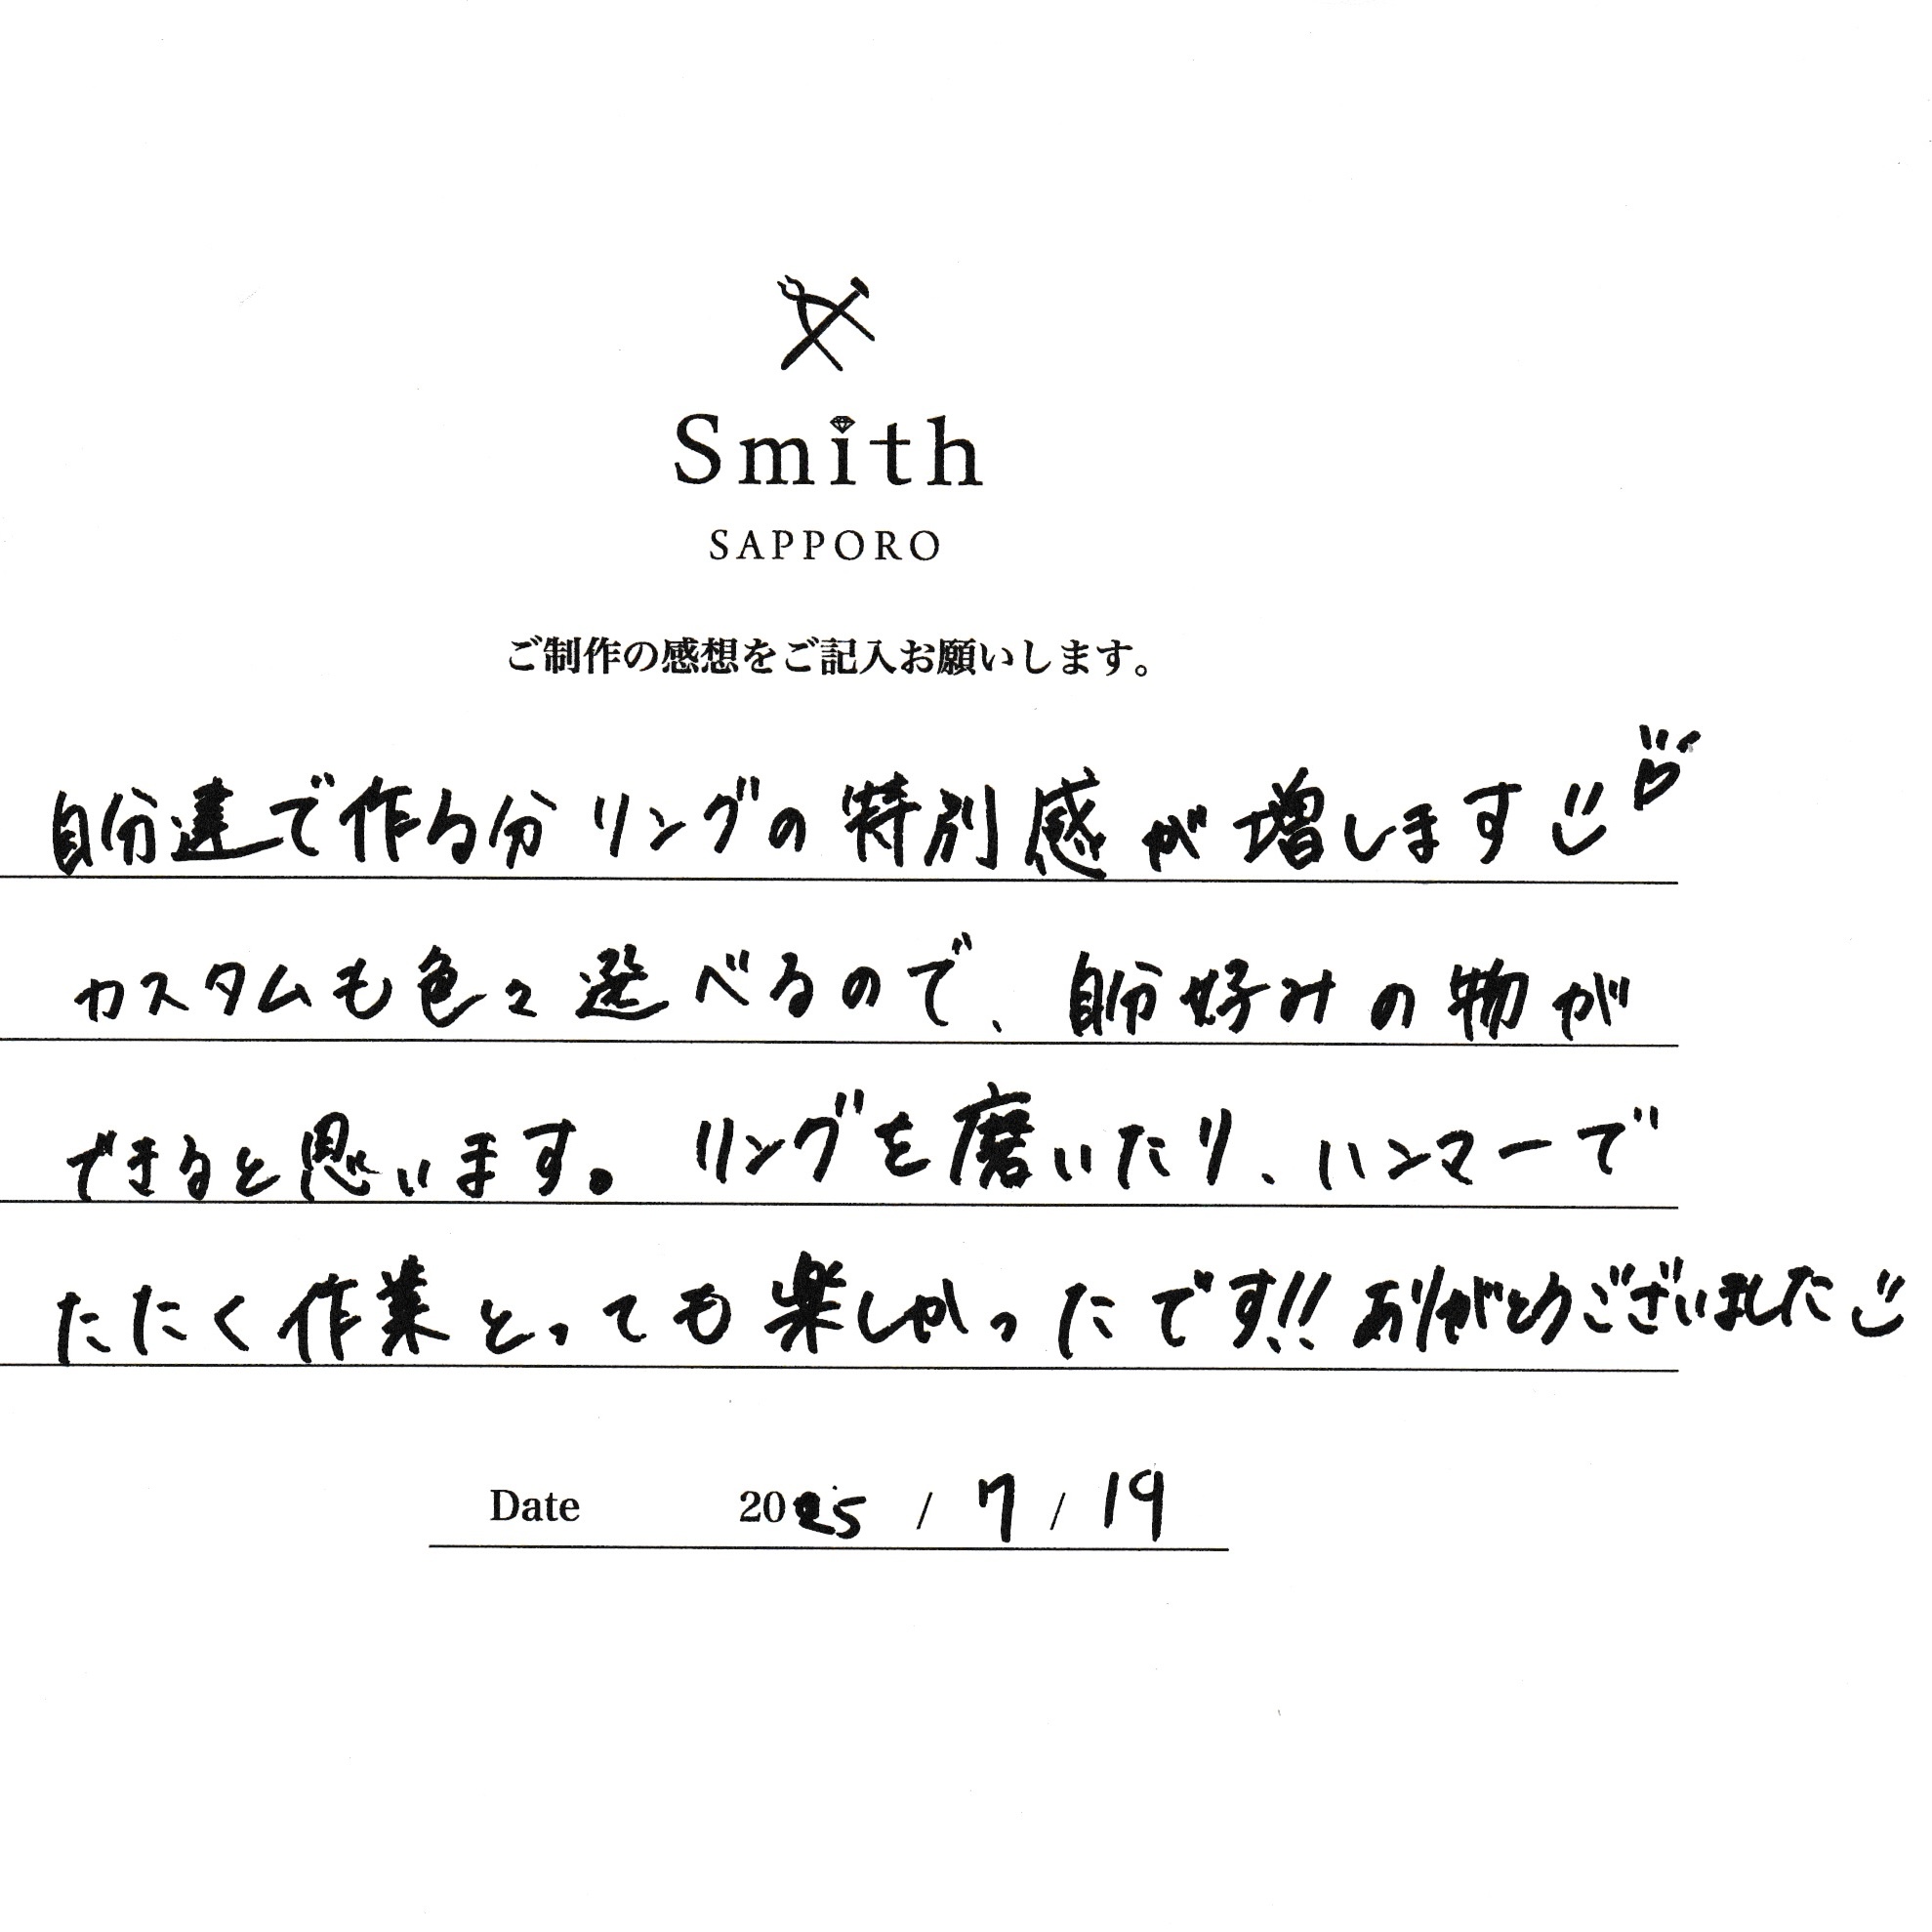 Smith
SAPPORO
ご制作の感想をご記入お願いします。
自分達で作る分リングの特別感が増します
カスタムも色々選べるので、自分好みの物が
できると思います。リングを磨いたり、ハンマーで
たたく作業とっても楽しかったです!! ありがとうございました
Date 2025 / 7 / 19